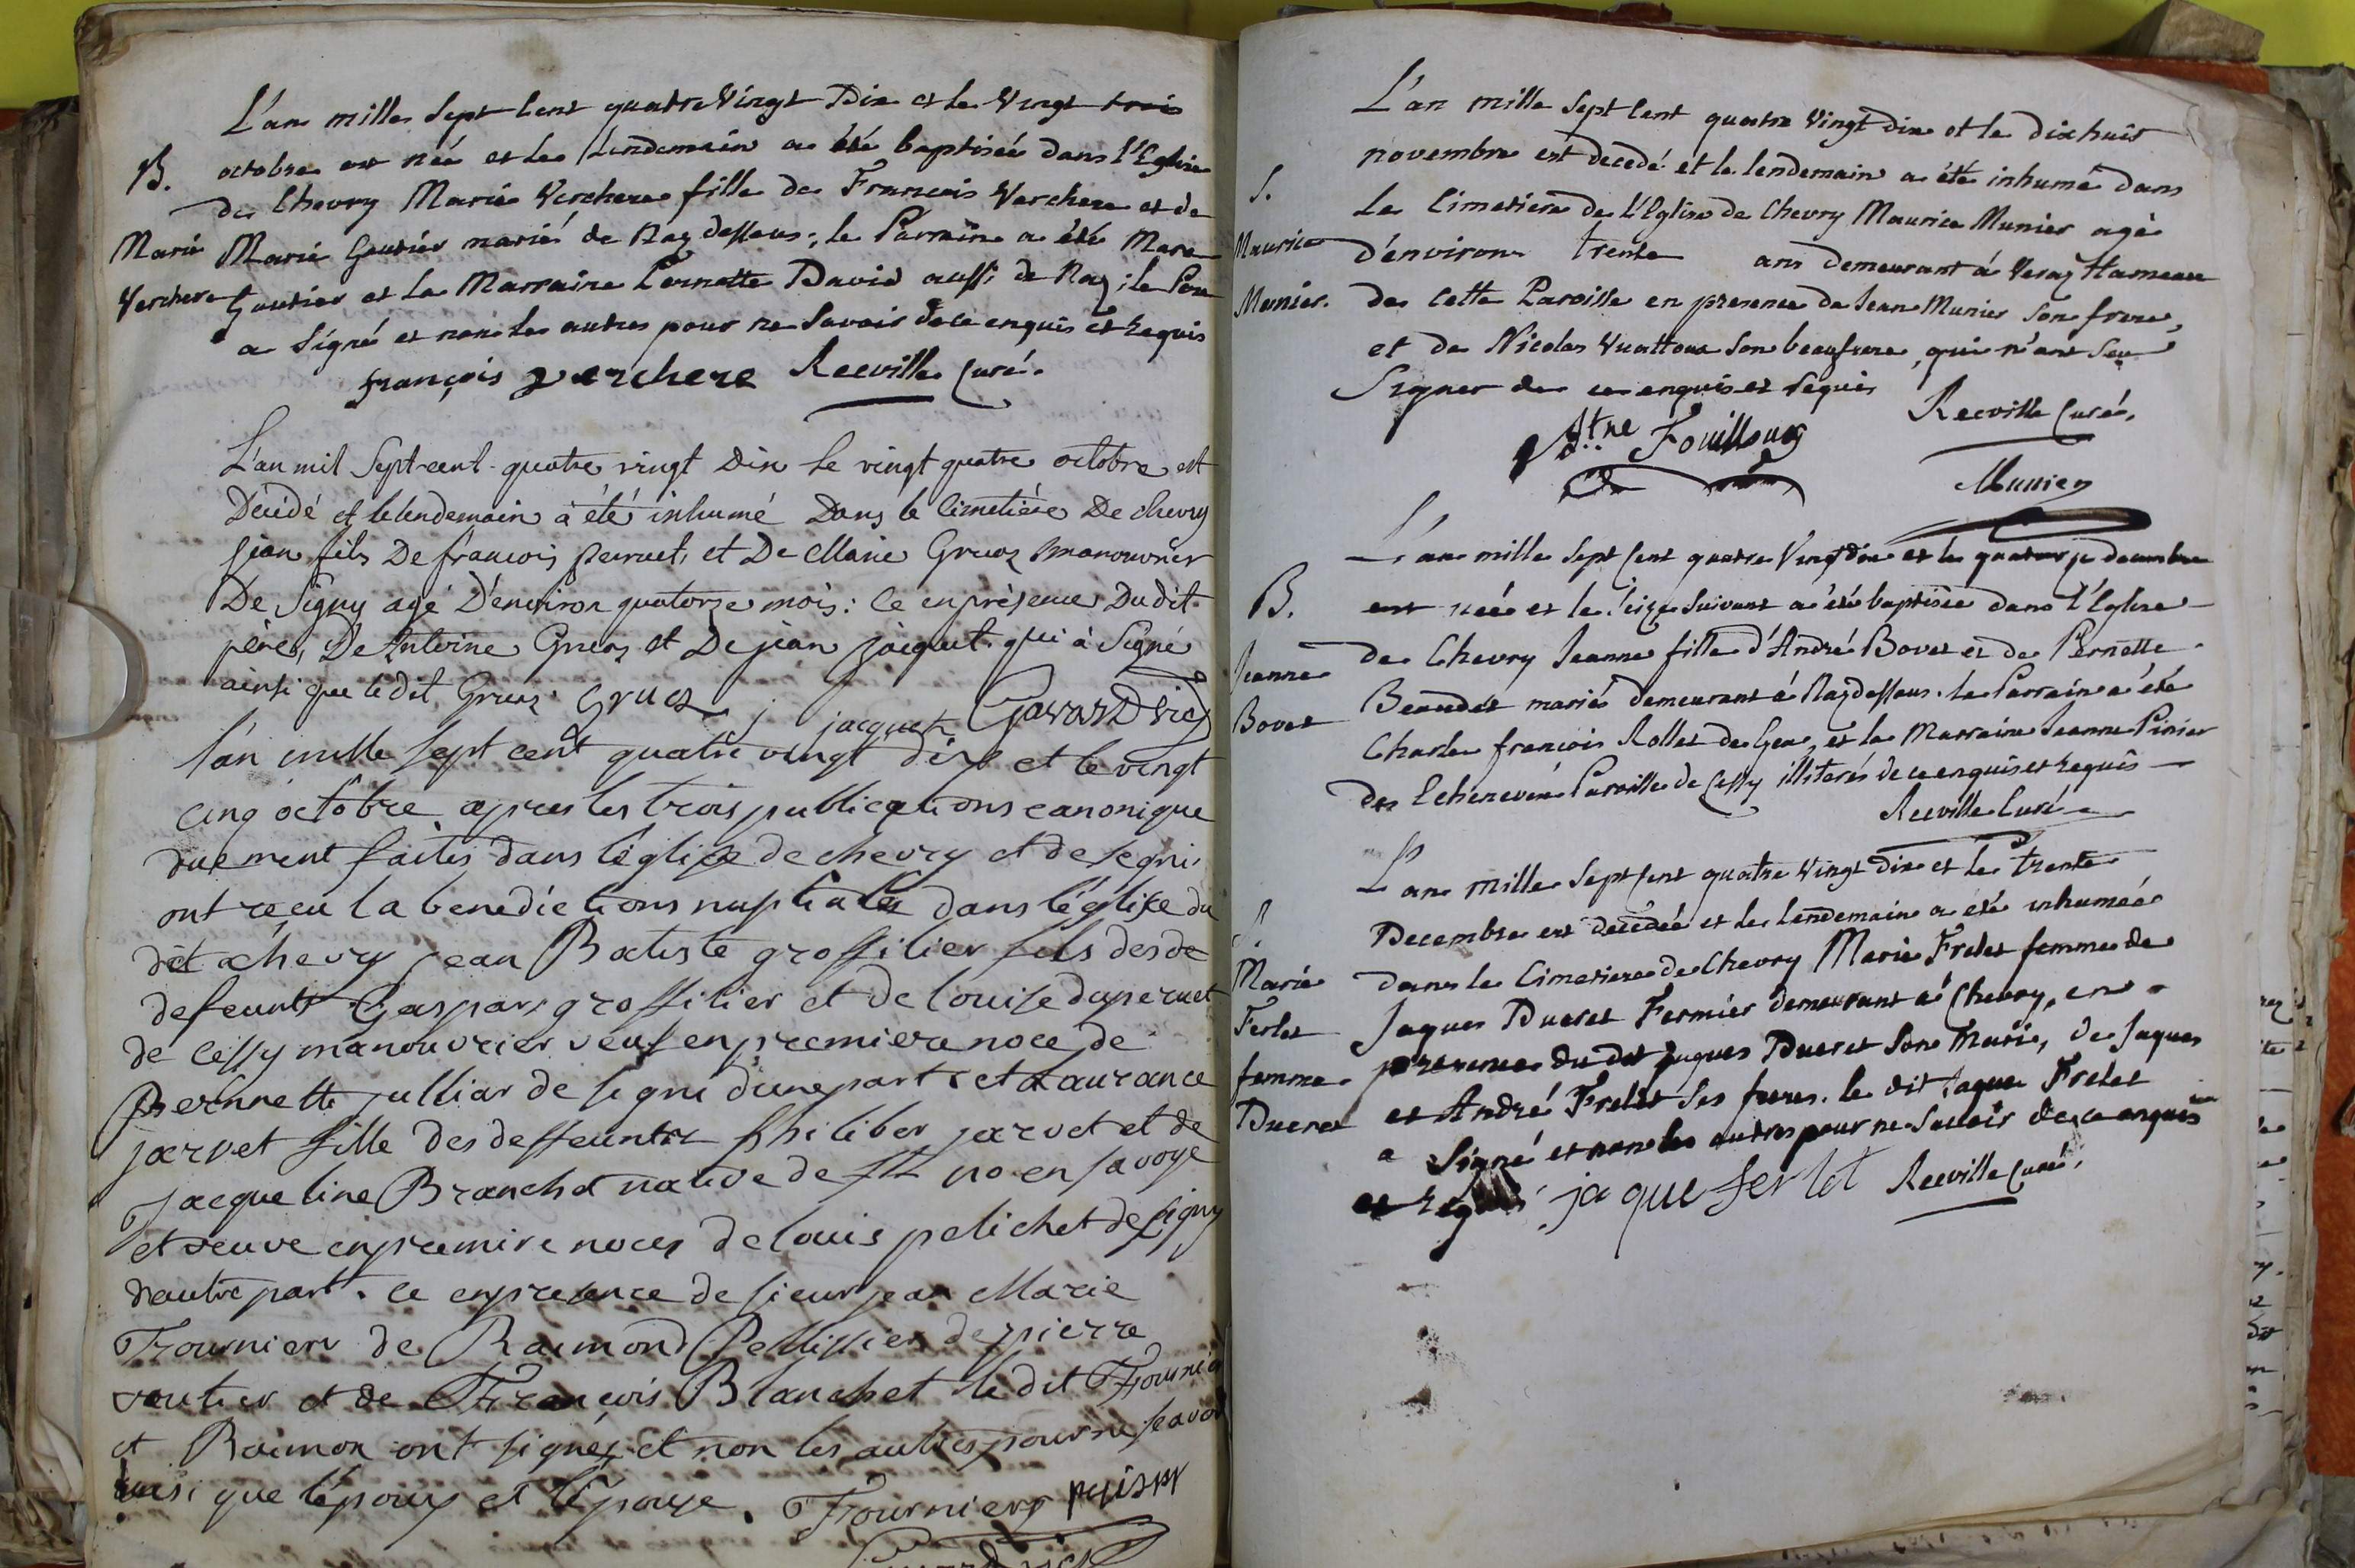 L'an mille Sept Cent quatre Vingt Dix et le Vingt trois
B. octobre est née et le Lendemain a été baptisée dans l'Eglise
de Chevry Marie Verchere fille de François Verchere et de
Marie Marie Gautier mariés de Naz dessous; le Parrain a été Marc
Verchere Gautier et la Marraine Pernette David aussi de Naz; le Pere
a Signé et non les autres pour ne Savoir de ce enquis et requis
françois verchere Reeville Curé.
L'an mil Sept-cent-quatre vingt Dix le vingt quatre octobre est
Décidé et le lendemain à été inhumé Dans le Cimetière De chevry
jean fils De françois peruet, et De Marie Gruoz manouvrier
De Signy agé D'environ quatorze mois: ce en présence Du dit
père, De Antoine Gruoz et De jean jacquet qui à Signé
ainsi que le dit Gruoz. Gruoz j jacquet
l'an mille sept cent quatre vingt dix et le vingt
cinq octobre apres les trois publications canonique
duement faites dans léglise de chevry et de segni,
ont reçu la benedictions nuptiales dans léglise du
dit chevry jean Batiste groffilier fils des de
defeunts Gaspar groffilier et de louise duperuet
de cessy manouvrier veuf en premiere noce de
Pernnette julliar de segni dune part et laurance
jarvet fille des deffeunts philiber jarvet et de
jacqueline Branchet native de en savoye
et veuve en premire noces de louis pelichet de signy
dautre part. ce en presence de sieur jean Marie
Fournier de Raimond Pellissier de pierre
voutier et de François Blanchet le dit Fournier
et Raimon ont signéz et non les autres pour ne seavoir
ainsi que lépoux et lépouse. Fournier
L'an mille Sept Cent quatre Vingt dix et le dixhuit
novembre est decedé et le lendemain a été inhumé dans
S. le Cimetiere de l'Eglise de Chevry Maurice Munier agé
Maurice d'environ trente ans demeurant à Veraz Hameau
Munier. de cette Paroisse en presence de Jean Munier Son frere,
et de Nicolas Vuattoux Son beaufrere, qui n'ont Seu
Signer de ce enquis et requis Reeville Curé.
Fouilloux
Munier
L'an mille Sept Cent quatre Vingt dix et le quatorze decembre
B. est née et le seize Suivant a été baptisée dans l'Eglise
de Chevry Jeanne fille d'André Bovet et de Pernette
Jeanne Beaudet mariés demeurant à Naz dessous. le Parrain a été
Bovet Charle françois Rollet de Gex, et la Marraine Jeanne Pinier
des Echenevex Paroisse de Cessy illiterés de ce enquis et requis
Reeville Curé
L'an mille Sept Cent quatre Vingt Dix et le trente
S. Decembre est decedée et le lendemain a été inhumée
Marie dans le Cimetiere de Chevry Marie Frelet femme de
Ferlet Jaques Dueret Fermier demeurant à Chevry, en
femme presence du dit Jaques Dueret Son Mari, de Jaques
Dueret et André Frelet Ses freres. le dit Jaques Frelet
a Signé et non les autres pour ne Savoir de ce enquis
et requis jaque ferlet Reeville Curé.